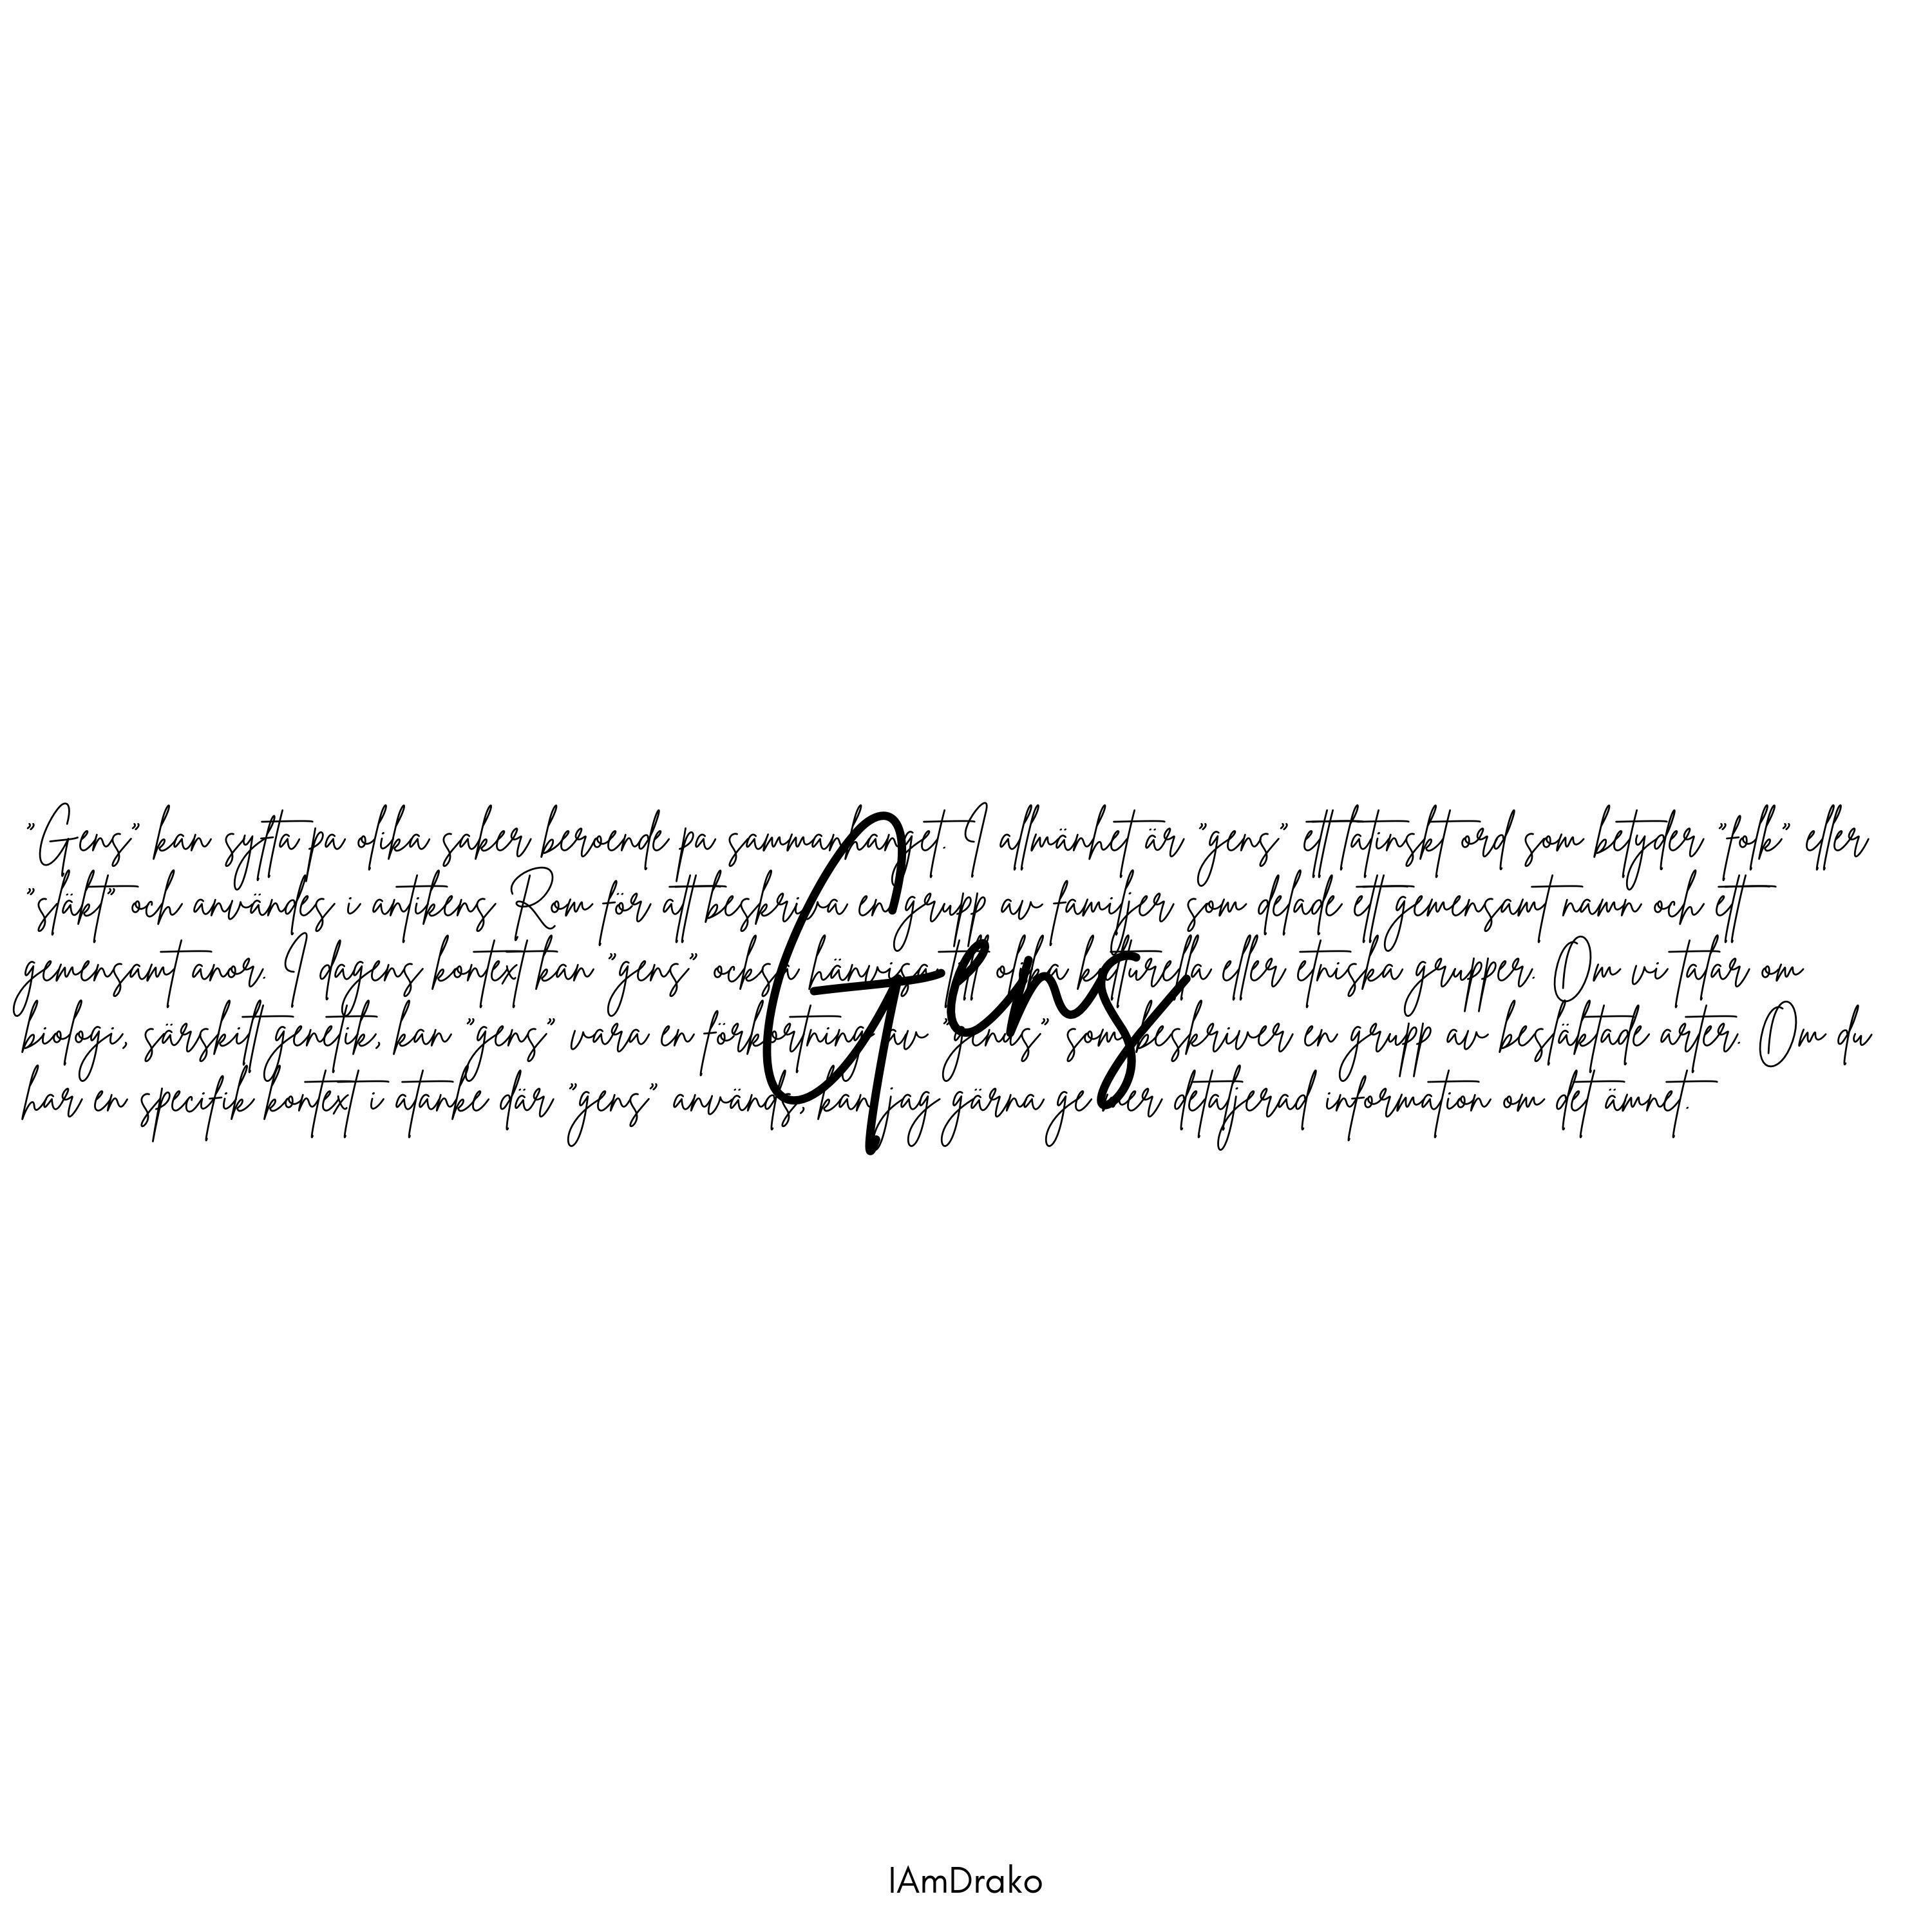 "Gens" kan syfta pa olika saker beroende pa sammanhanget. I allmänhet är "gens" ett latinskt ord som betyder "folk" eller
"släkt" och användes i antikens Rom för att beskriva en grupp av familjer som delade ett gemensamt namn och ett
gemensamt anor. I dagens kontext kan "gens" också hänvisa till olika kulturella eller etniska grupper. Om vi talar om
biologi, särskilt genetik, kan "gens" vara en förkortning av "genus" som beskriver en grupp av besläktade arter. Om du
har en specifik kontext i atanke där "gens" används, kan jag gärna ge mer detaljerad information om det ämnet.
Gens
IAmDrako